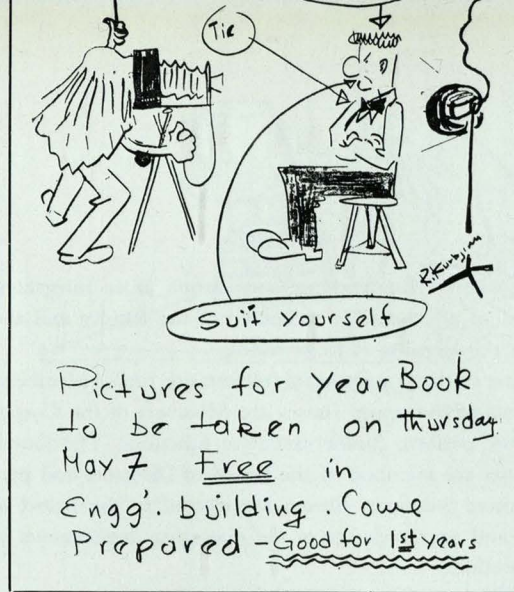 Tie
R. Kurbjian
Suit Yourself
Pictures for Year Book
to be taken on thursday
May 7 Free in
Engg' building Come
Prepared Good for 1st years